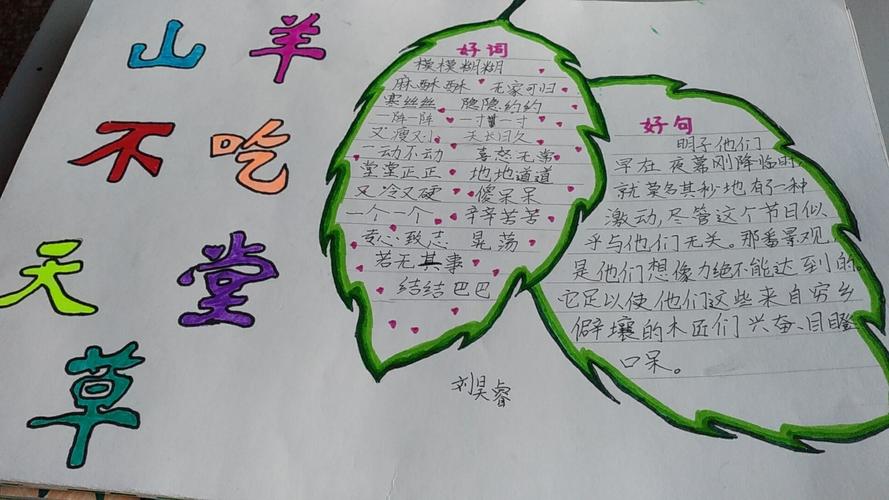 山羊
不吃
天堂
草
好词
模模糊糊
麻酥酥 无家可归
寒丝丝 隐隐约约
一阵一阵 一寸一寸
又瘦又小 天长日久
一动不动 喜怒无常
堂堂正正 地地道道
又冷又硬 傻呆呆
一个一个 辛辛苦苦
专心致志 晃荡
若无其事
结结巴巴
好句
明子他们
早在夜幕刚降临时,
就莫名其秒地有了一种
激动,尽管这个节日似
乎与他们无关。那番景观,
是他们想像力绝不能达到的。
它足以使他们这些来自穷乡
僻壤的木匠们兴奋、目瞪
口呆。
刘昊睿